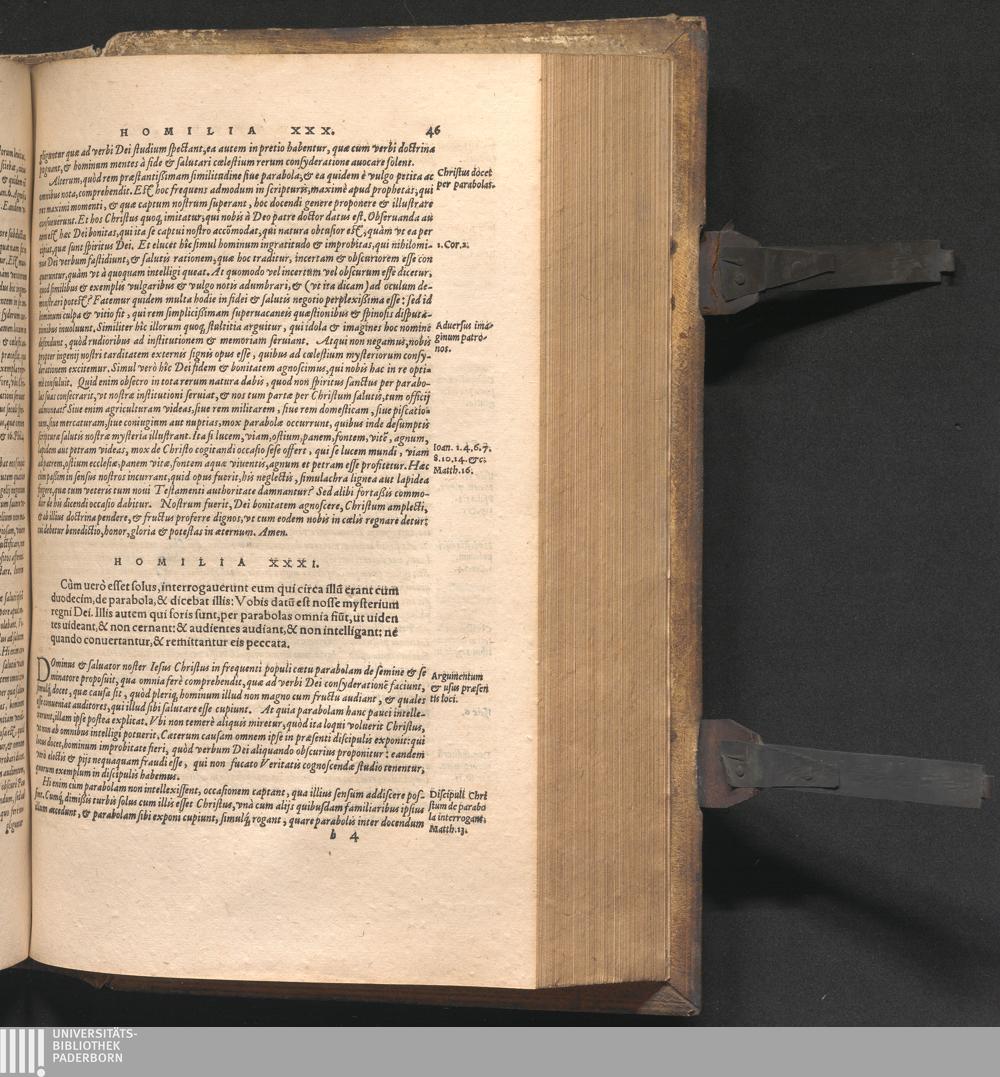 HOMILIA XXX. 46
pliguntur quæ ad verbi Dei studium spectant, ea autem in pretio habentur, quæ cum verbi doctrina
pugnant, & hominum mentes à fide & salutari cœlestium rerum consyderatione auocare solent.
Alterum, quòd rem præstantissimam similitudine siue parabola, & ea quidem è vulgo petita ac
omnibus nota, comprehendit. Est hoc frequens admodum in scripturis, maximè apud prophetas, qui
res maximi momenti, & quæ captum nostrum superant, hoc docendi genere proponere & illustrare
consueuerunt. Et hos Christus quoq; imitatur, qui nobis à Deo patre doctor datus est. Obseruanda au
tem est hæc Dei bonitas, qui ita se captui nostro accōmodat, qui natura obtusior est, quàm vt ea per
cipiat, quæ sunt spiritus Dei. Et elucet hîc simul hominum ingratitudo & improbitas, qui nihilomi-
nus Dei verbum fastidiunt, & salutis rationem, quæ hoc traditur, incertam & obscuriorem esse con
queruntur, quàm vt à quoquam intelligi queat. At quomodo vel incertum vel obscurum esse dicetur,
quod similibus & exemplis vulgaribus & vulgo notis adumbrari, & (vt ita dicam) ad oculum de-
monstrari potest? Fatemur quidem multa hodie in fidei & salutis negotio perplexissima esse: sed id
hominum culpa & vitio fit, qui rem simplicissimam superuacaneis quæstionibus & spinosis disputa-
tionibus inuoluunt. Similiter hîc illorum quoq; stultitia arguitur, qui idola & imagines hoc nomine
defendunt, quòd rudioribus ad institutionem & memoriam seruiant. Atqui non negamus, nobis
propter ingenij nostri tarditatem externis signis opus esse, quibus ad cœlestium mysteriorum consy-
derationem excitemur. Simul verò hîc Dei fidem & bonitatem agnoscimus, qui nobis hac in re opti-
mè consuluit. Quid enim obsecro in tota rerum natura dabis, quod non spiritus sanctus per parabo-
las suas consecrarit, vt nostræ institutioni seruiat, & nos tum partæ per Christum salutis, tum officij
admoneat? Siue enim agriculturam videas, siue rem militarem, siue rem domesticam, siue piscatio-
nem, siue mercaturam, siue coniugium aut nuptias, mox parabolæ occurrunt, quibus inde desumptis
scripturæ salutis nostræ mysteria illustrant. Ita si lucem, viam, ostium, panem, fontem, vitē, agnum,
lapidem aut petram videas, mox de Christo cogitandi occasio sese offert, qui se lucem mundi, viam
ad patrem, ostium ecclesiæ, panem vitæ, fontem aquæ viuentis, agnum et petram esse profitetur. Hæc
cùm passim in sensus nostros incurrant, quid opus fuerit, his neglectis, simulachra lignea aut lapidea
fingere, quæ cum veteris tum noui Testamenti authoritate damnantur? Sed alibi fortassis commo-
dior de his dicendi occasio dabitur. Nostrum fuerit, Dei bonitatem agnoscere, Christum amplecti,
& ab illius doctrina pendere, & fructus proferre dignos, vt cum eodem nobis in cœlis regnare detur:
cui debetur benedictio, honor, gloria & potestas in æternum. Amen.
Christus docet
per parabolas.
1. Cor. 2.
Aduersus ima-
ginum patro-
nos.
Ioan. 1.4.6.7.
8.10.14. &c.
Matth. 16.
HOMILIA XXXI.
Cùm uerò esset solus, interrogauerunt eum qui circa illū erant cum
duodecim, de parabola, & dicebat illis: Vobis datū est nosse mysterium
regni Dei. Illis autem qui foris sunt, per parabolas omnia fiūt, ut uiden
tes uideant, & non cernant: & audientes audiant, & non intelligant: ne
quando conuertantur, & remittantur eis peccata.
Dominus & saluator noster Iesus Christus in frequenti populi cœtu parabolam de semine & se
minatore proposuit, qua omnia ferè comprehendit, quæ ad verbi Dei consyderationē faciunt,
simulq; docet, quæ causa sit, quòd pleriq; hominum illud non magno cum fructu audiant, & quales
esse conueniat auditores, qui illud sibi salutare esse cupiunt. At quia parabolam hanc pauci intelle-
xerunt, illam ipse postea explicat. Vbi non temerè aliquis miretur, quòd ita loqui voluerit Christus,
vt non ab omnibus intelligi potuerit. Cæterum causam omnem ipse in præsenti discipulis exponit: qui
locus docet, hominum improbitate fieri, quòd verbum Dei aliquando obscurius proponitur: eandem
verò electis & pijs nequaquam fraudi esse, qui non fucato Veritatis cognoscendæ studio tenentur,
quorum exemplum in discipulis habemus.
Hi enim cùm parabolam non intellexissent, occasionem captant, qua illius sensum addiscere pos-
sint. Cumq; dimissis turbis solus cum illis esset Christus, vnà cum alijs quibusdam familiaribus ipsius
illum accedunt, & parabolam sibi exponi cupiunt, simulq; rogant, quare parabolis inter docendum
Argumentum
& usus præsen
tis loci.
Discipuli Chri
stum de parabo
la interrogant.
Matth. 13.
b 4
UNIVERSITÄTS-
BIBLIOTHEK
PADERBORN